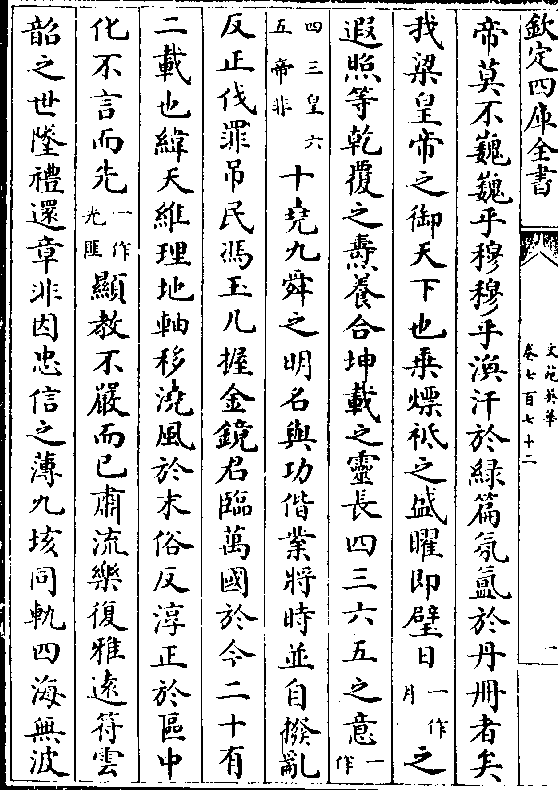 欽定四庫全書
文苑英華
卷七百七十二
一
帝莫不巍巍乎穆穆乎渙汗於緑篇氛氲於丹冊者矣
我梁皇帝之御天下也乗熛祇之盛曜即璧日一作月之
遐照等乾覆之燾養合坤載之靈長四三六五之意一作
四三皇六五帝非十堯九舜之明名與功偕業將時並自撥亂
反正伐罪吊民馮玉几握金鏡君臨萬國於今二十有
二載也緯天維理地軸移澆風於末俗反淳正於區中
化不言而先一作光匪顯教不嚴而已肅流樂復雅遠符雲
韶之世隆禮還章非因忠信之薄九垓同軌四海無波